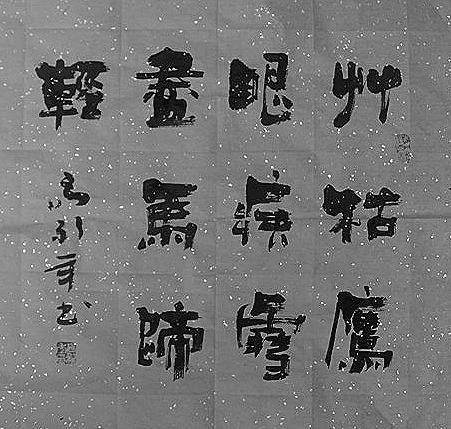 艸枯鷹
眼疾雪
盡馬蹄
輕